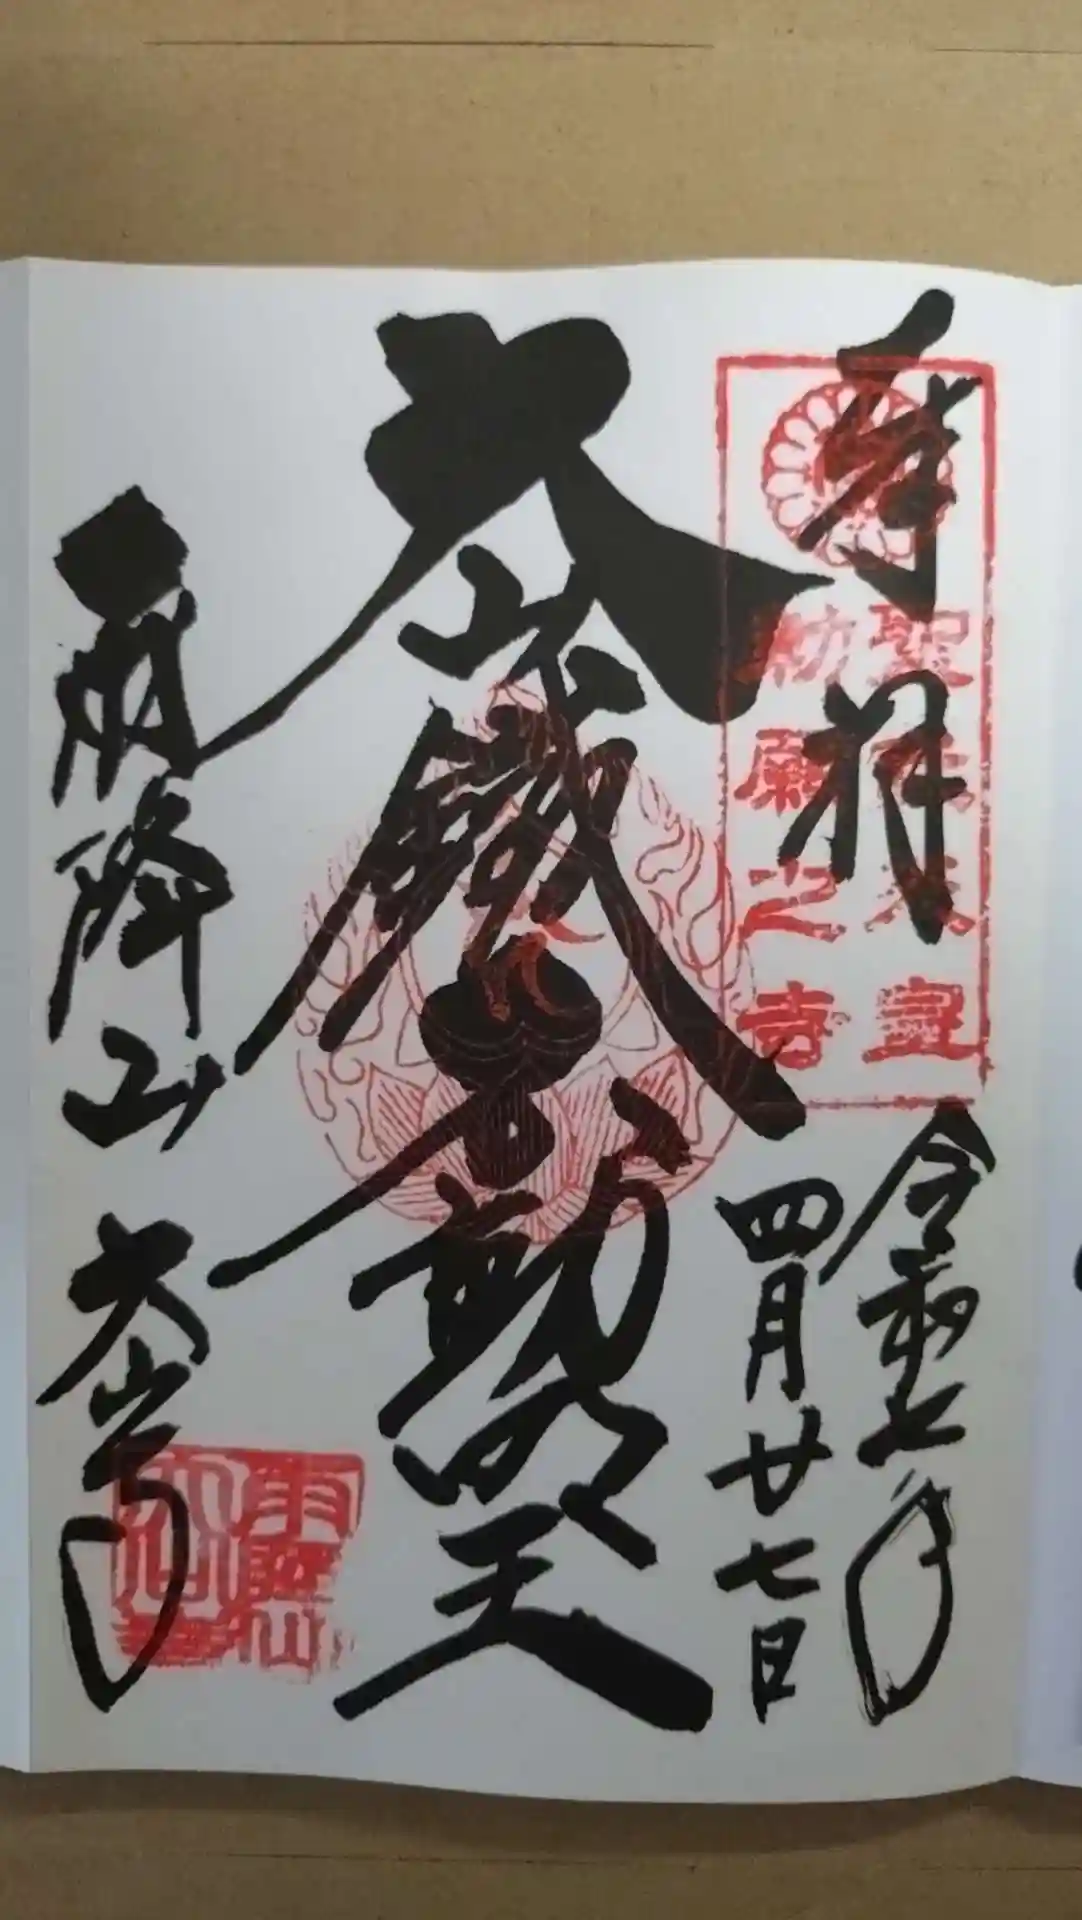 奉拝
聖武天皇
勅願之寺
令和七年
四月廿七日
大山鐵不動明王
雨降山 大山寺
雨降山
大山寺